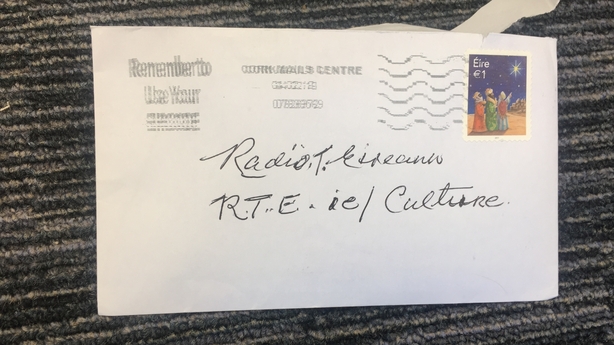 Remember to
Use Your
CORK MAILS CENTRE
Éire
€1
Radio, 1. Eireann
R.T.E. ie/ Culture.